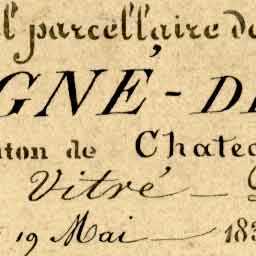 l parcellaire de
GNÉ-D
nton de Chatea
Vitré —
19 Mai — 183